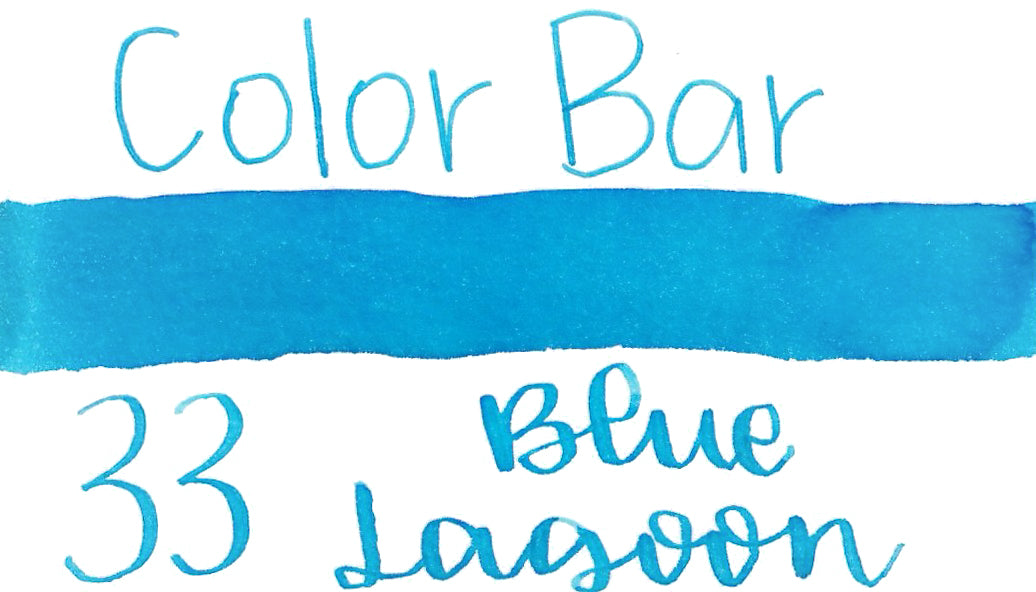 Color Bar
33 Blue
Lagoon